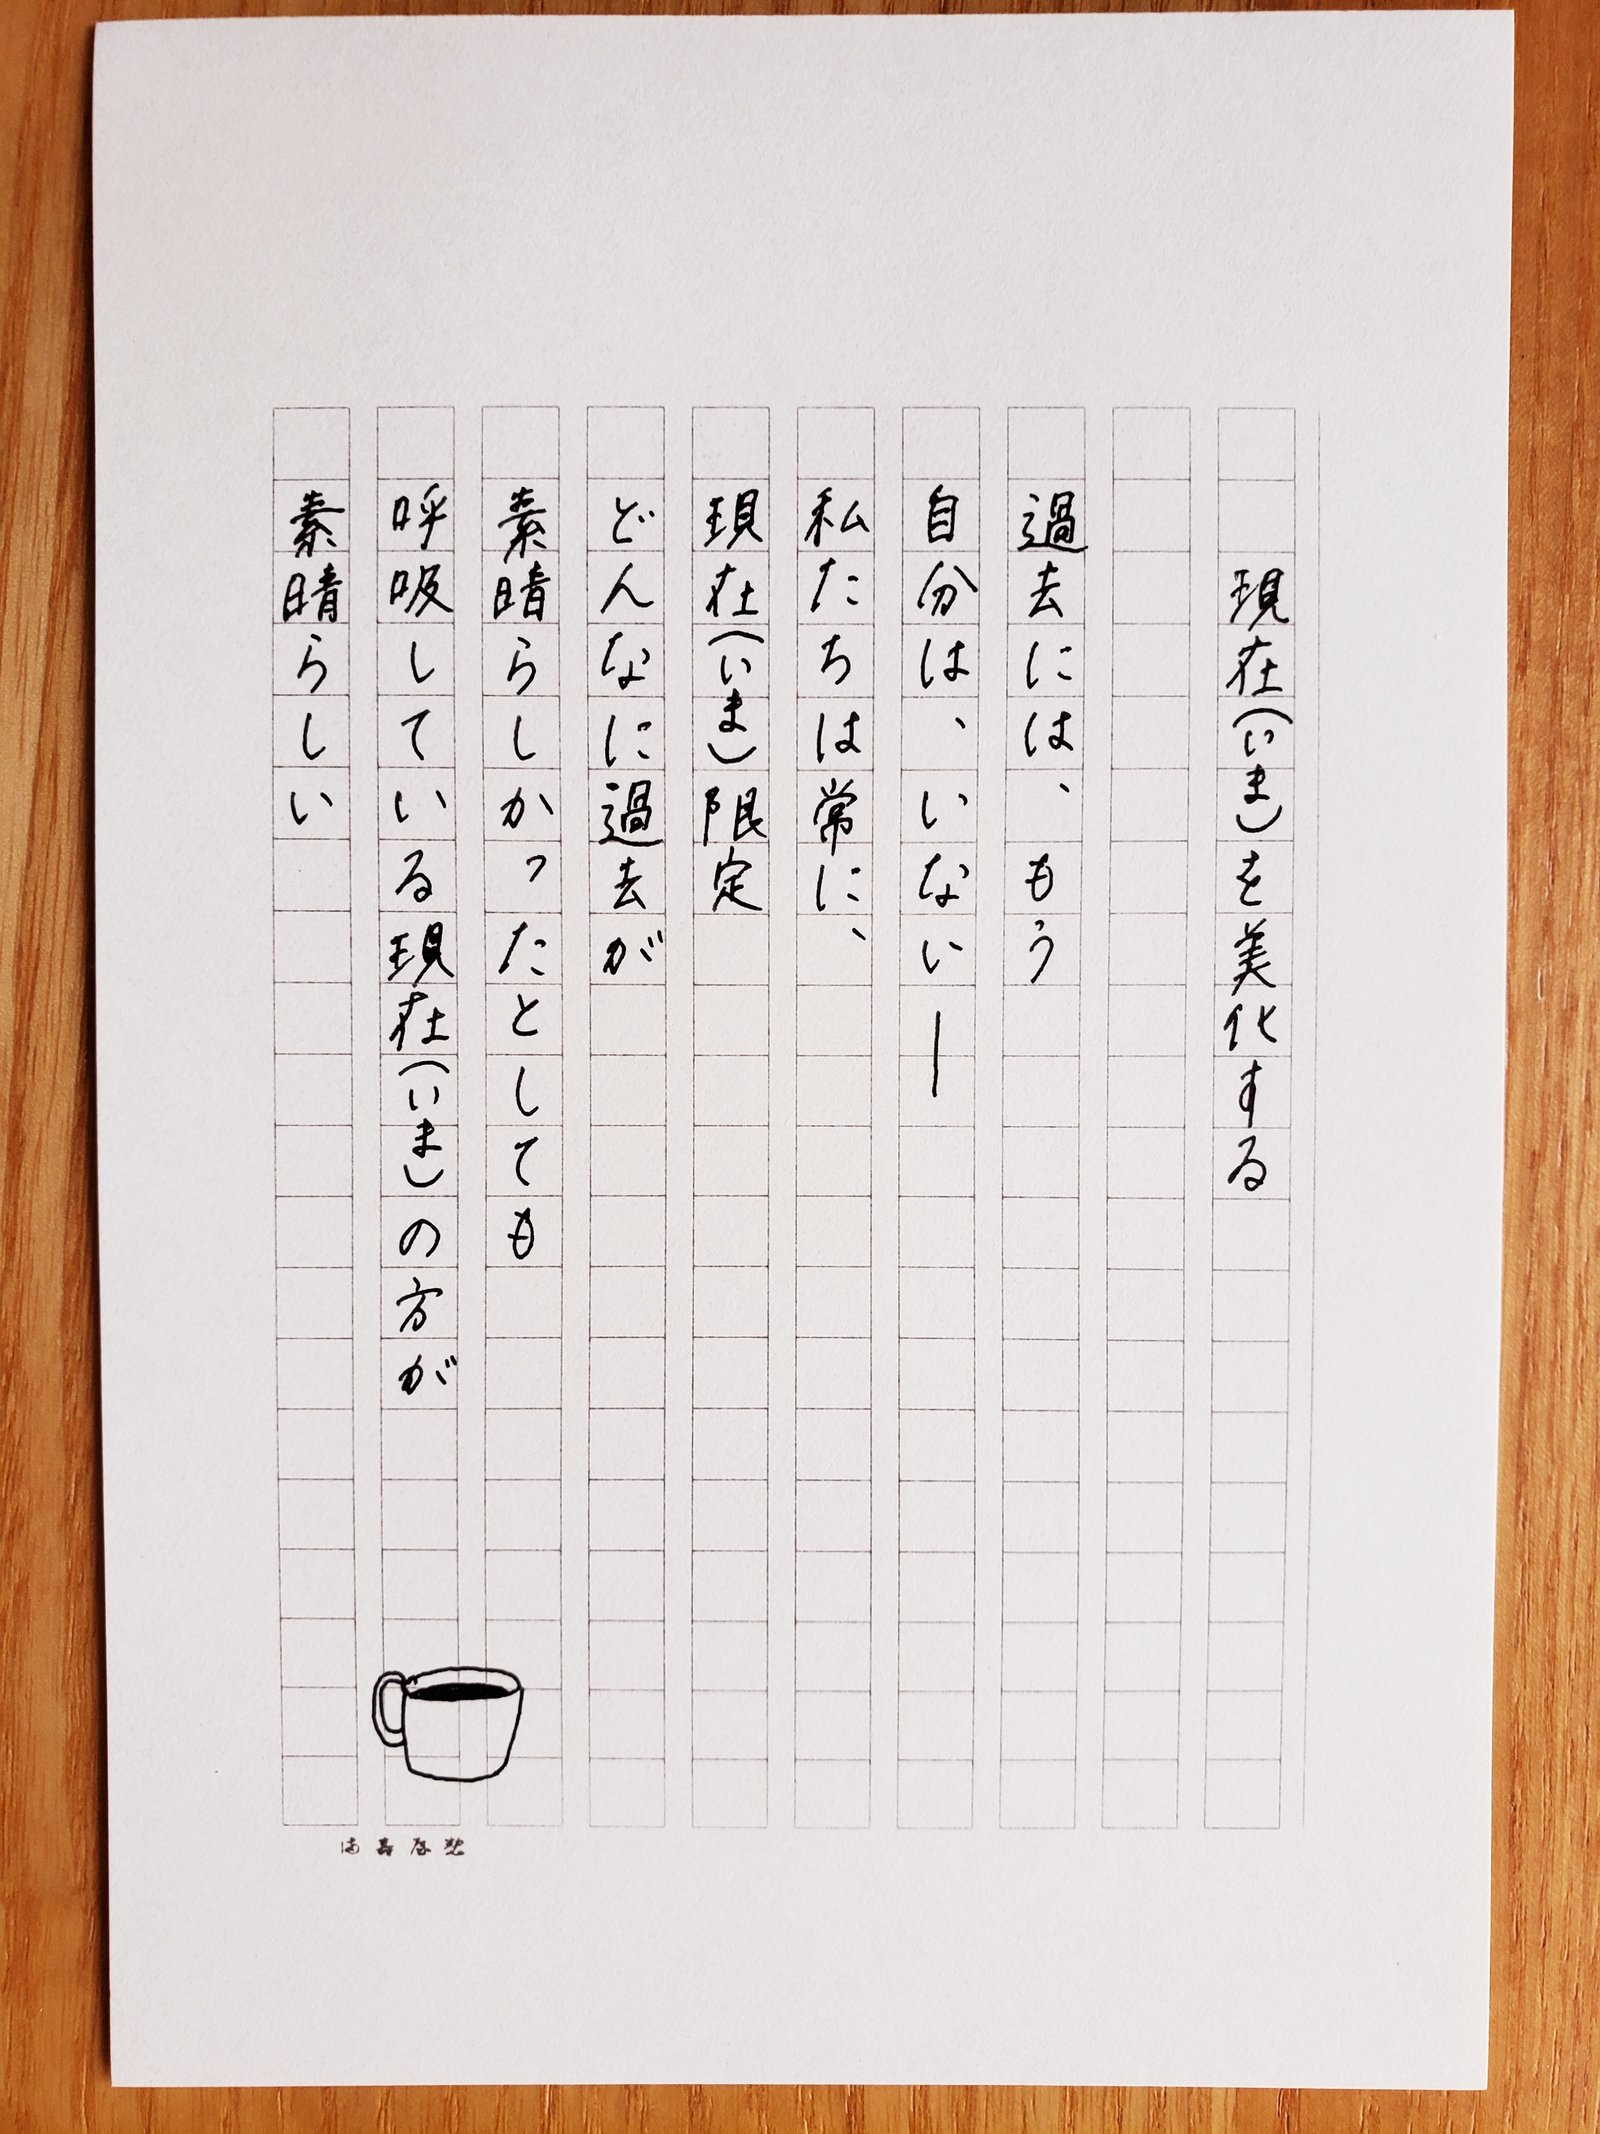 現在(いま)を美化する
過去には、もう
自分は、いない―
私たちは常に、
現在(いま)限定
どんなに過去が
素晴らしかったとしても
呼吸している現在(いま)の方が
素晴らしい